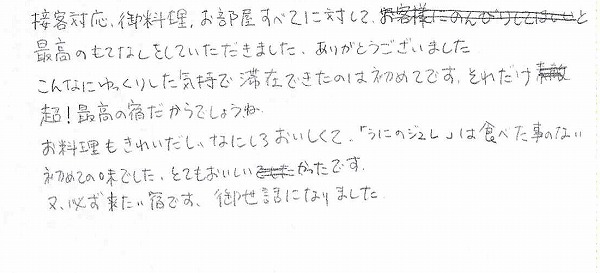 接客対応、御料理、お部屋すべてに対して、お客様にのんびりしてほしいと
最高のもてなしをしていただきました。ありがとうございました
こんなにゆっくりした気持で滞在できたのは初めてです。それだけ素敵
超！最高の宿だからでしょうね
お料理もきれいだし、なにしろおいしくて、「うにのジュレ」は食べた事のない
初めての味でした。とてもおいしいかったです。
又、必ず来たい宿です、御世話になりました